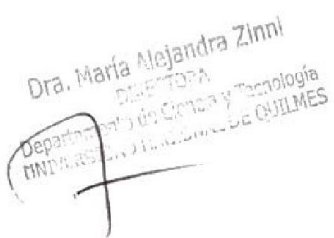 Dra. María Alejandra Zinni
DIRECTORA
Departamento de Ciencia y Tecnología
UNIVERSIDAD NACIONAL DE QUILMES